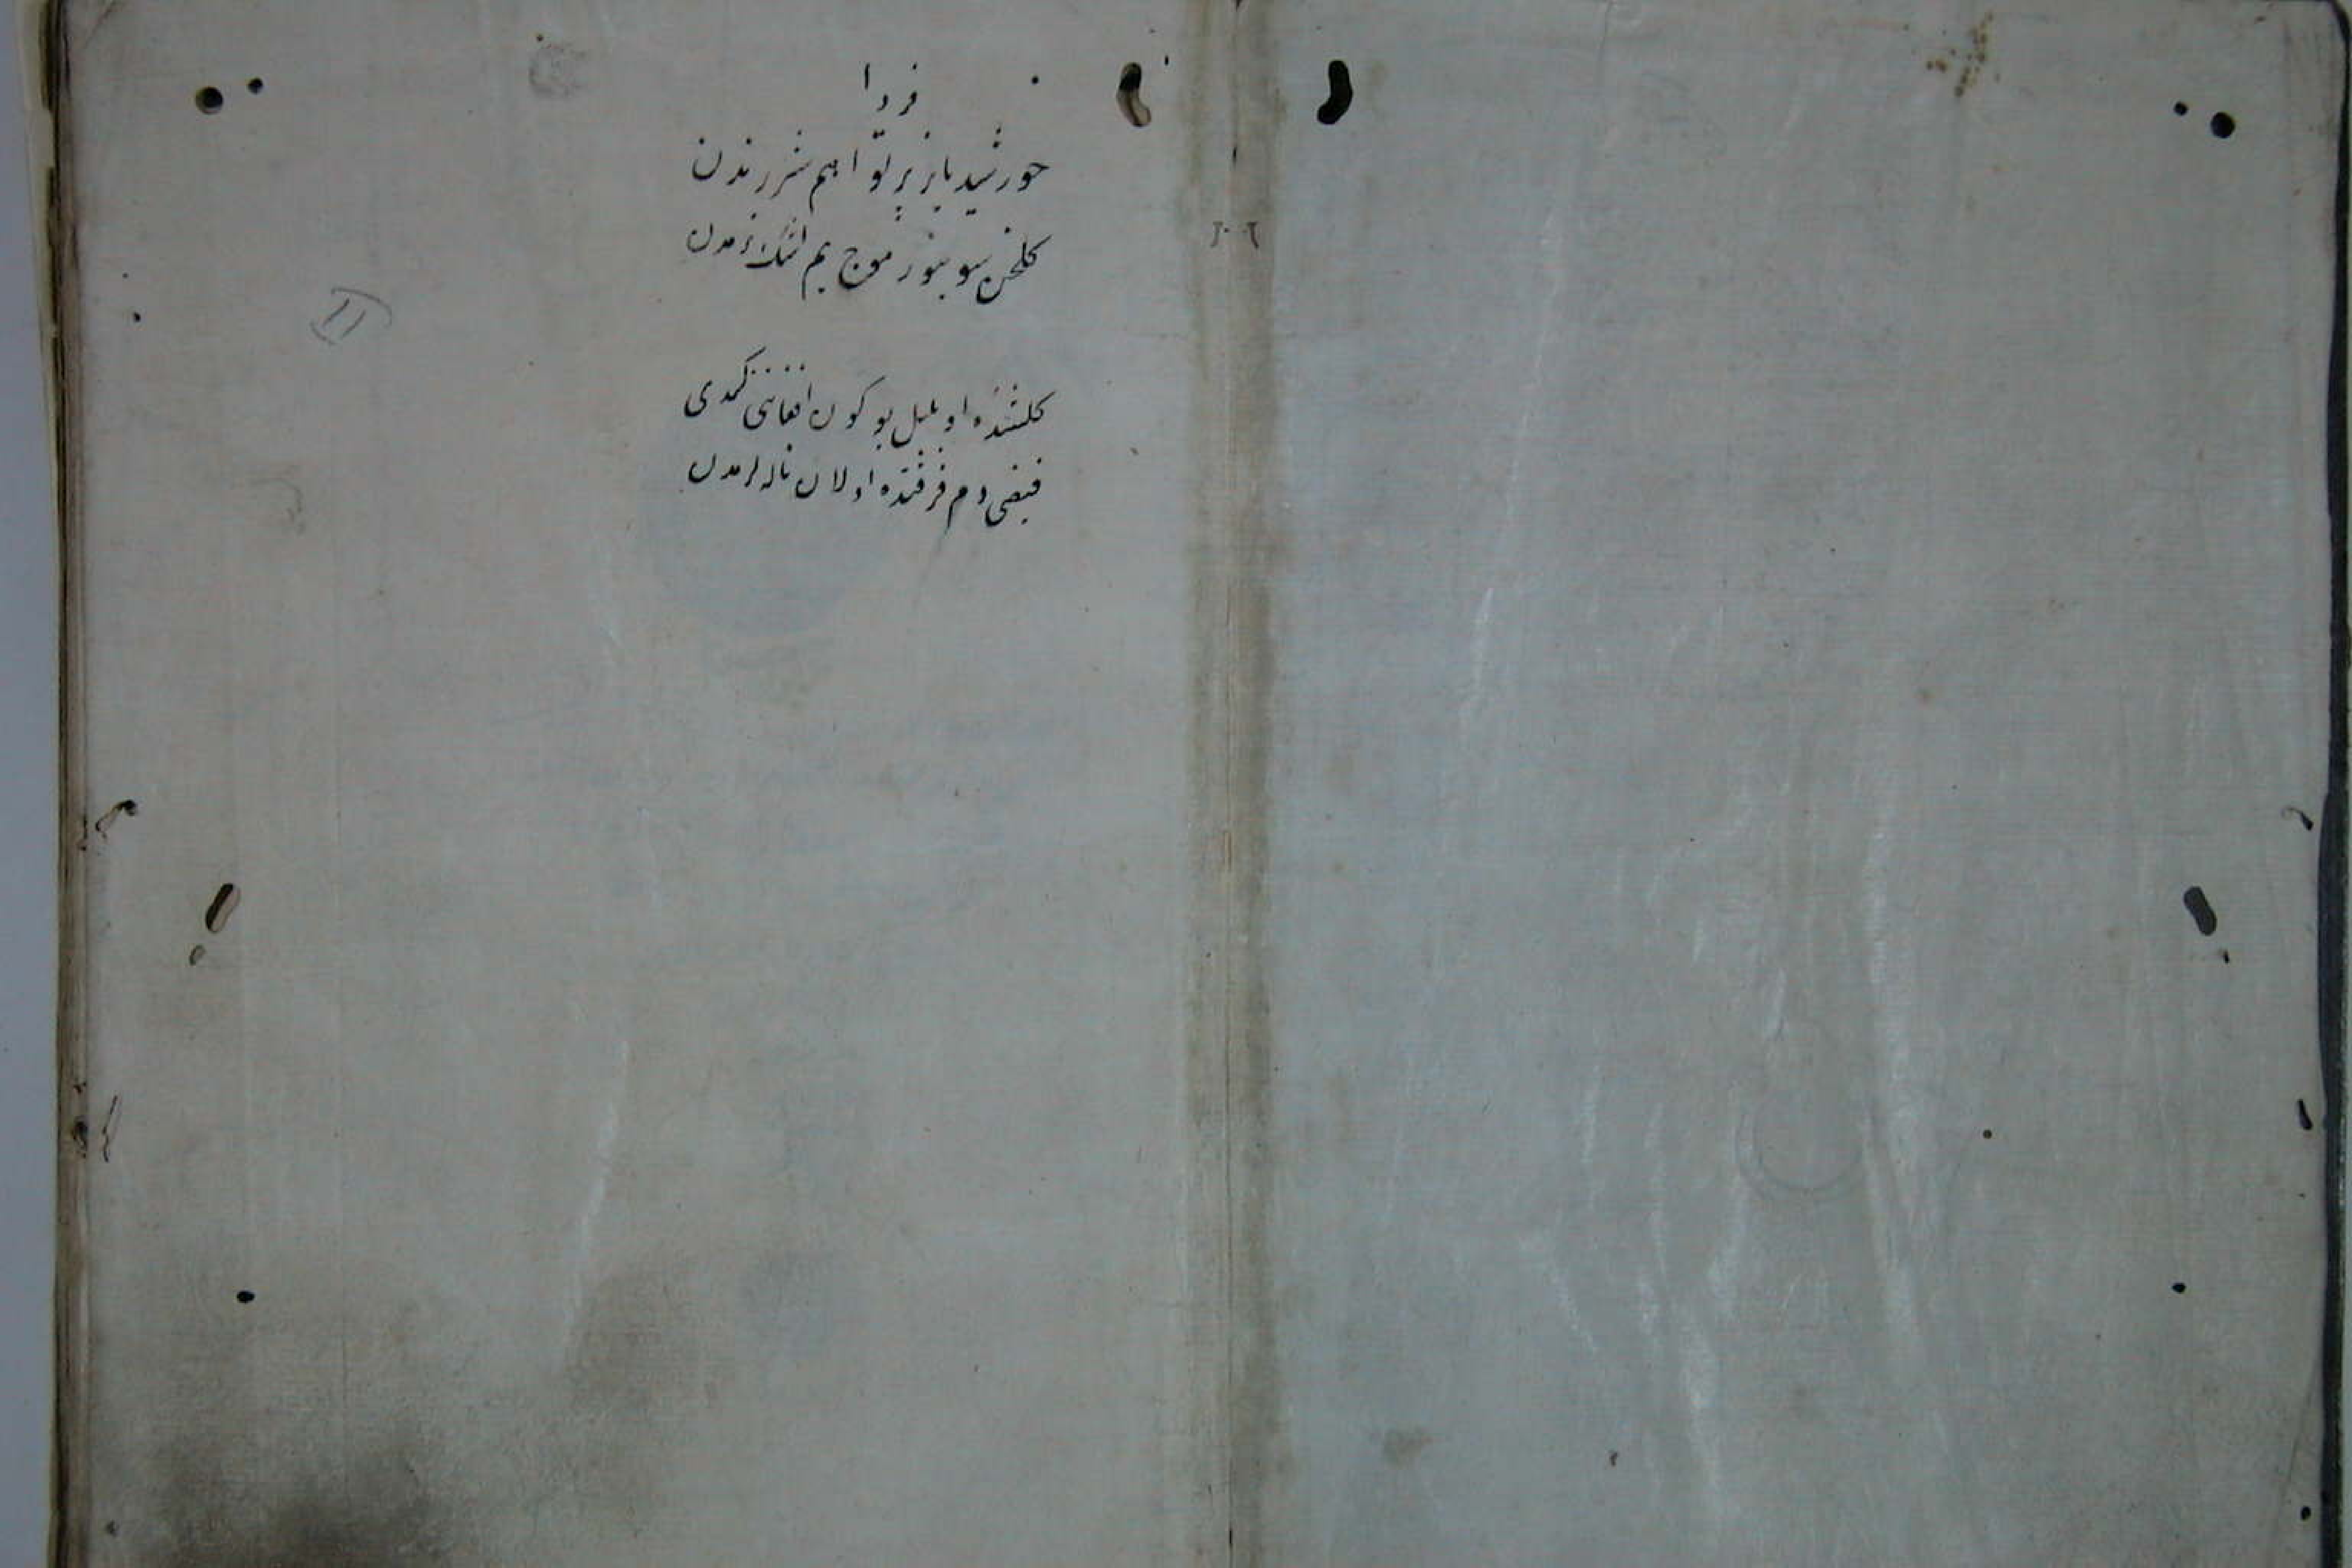 فردا
خورشید یانر پرتو اهم شررندن
کلخن سوینور موج یم اشک ترمدن
کلشنده او بلبل بو کون افغاننی کمدی
فیضی دم فرقتده اولان ناله لرمدن